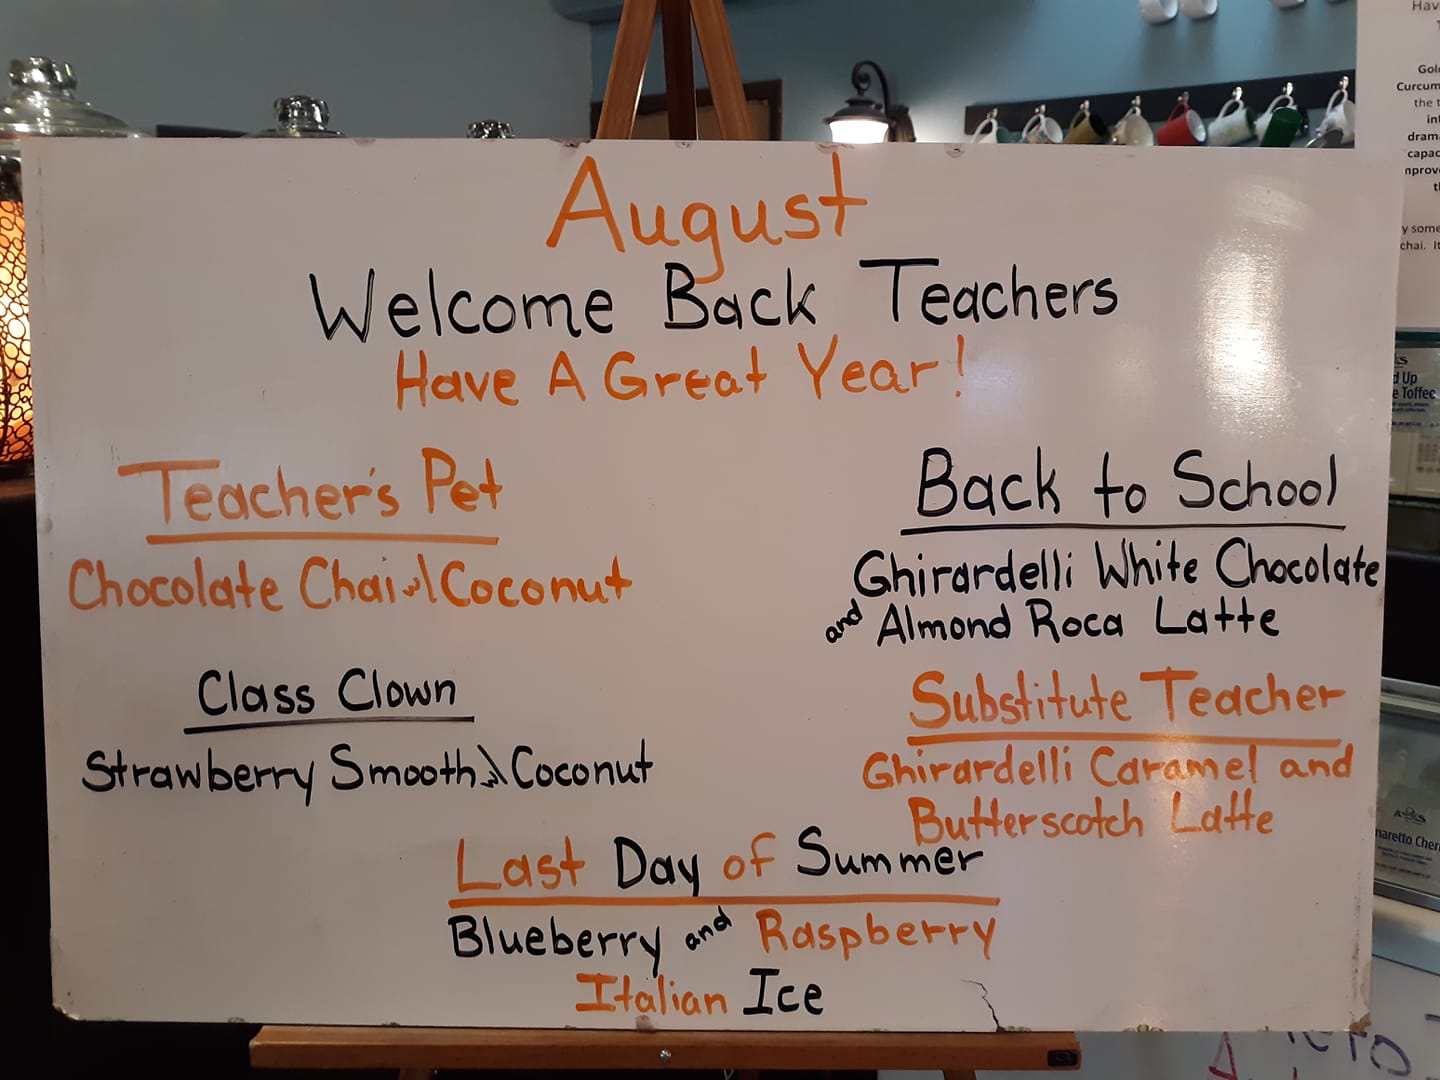 August
Welcome Back Teachers
Have A Great Year!
Teacher's Pet
Chocolate Chai w/ Coconut
Class Clown
Strawberry Smooth w/ Coconut
Back to School
Ghirardelli White Chocolate
and Almond Roca Latte
Substitute Teacher
Ghirardelli Caramel and
Butterscotch Latte
Last Day of Summer
Blueberry and Raspberry
Italian Ice
Hav
Gol
Curcum
the t
inf
dram
capac
mprov
th
y some
chai. It
d Up
e Toffee
naretto Cher